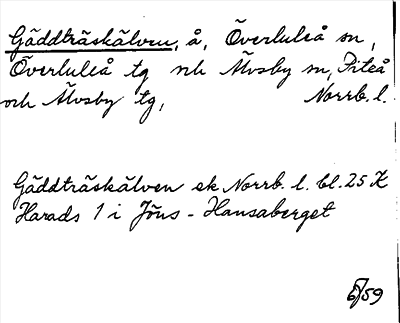 Gäddträskälven, å, Överluleå sn,
Överluleå tg och Älvsby sn, Piteå
och Älvsby tg, Norrb. l.
Gäddträskälven ek Norrb. l. bl. 25 K
Harads 1 i Jöns-Hansaberget
5/59